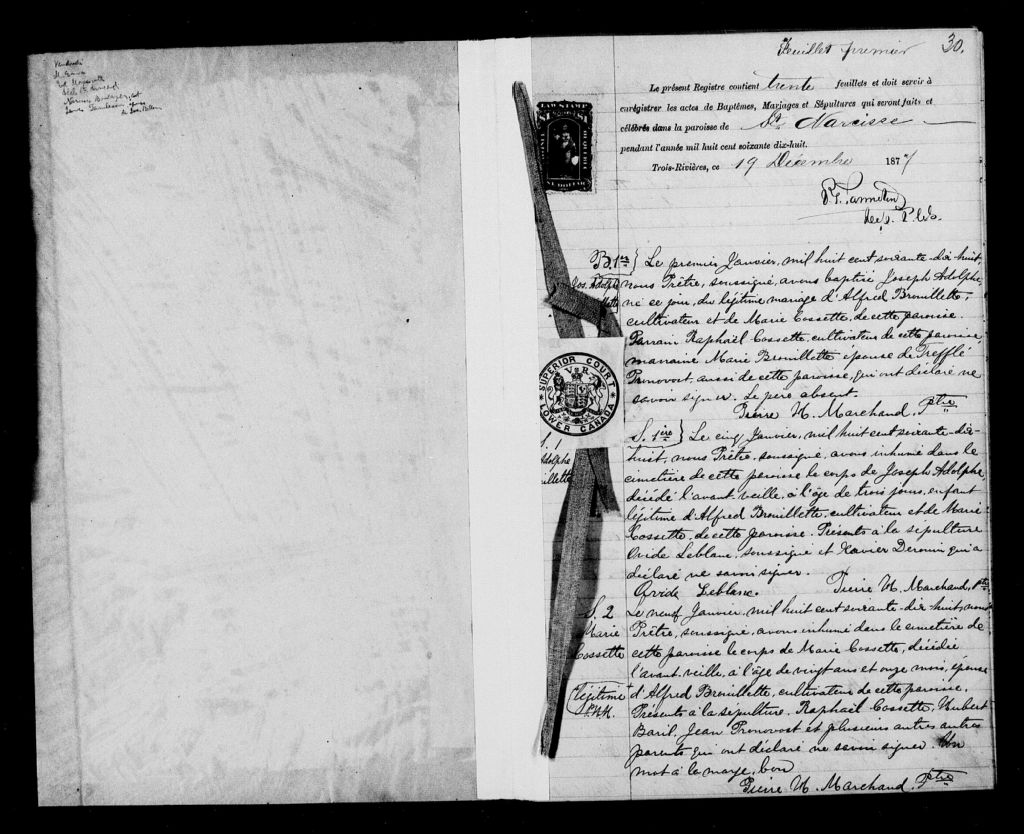 Feuillet premier
30.
Le présent Registre contient trente feuillets et doit servir à
enrégistrer les actes de Baptêmes, Mariages et Sépultures qui seront faits et
célébrés dans la paroisse de St. Narcisse
pendant l'année mil huit cent soixante dix-huit.
Trois-Rivières, ce 19 Decembre 1877
LAW STAMP
B. 1er
Jos. Adolphe
Le premier Janvier, mil huit cent soixante-dix-huit,
nous Prêtre, soussigné, avons baptisé Joseph Adolphe,
né ce jour, du légitime mariage d'Alfred Brouillette,
cultivateur et de Marie Cossette, de cette paroisse.
Parrain Raphaël Cossette, cultivateur de cette paroisse,
marraine Marie Brouillette epouse de Trefflé
Pronovost, aussi de cette paroisse, qui ont déclaré ne
savoir signer. Le père absent.
Pierre H. Marchand, Ptre
SUPERIOR COURT
V R
LOWER CANADA
S. 1
Adolphe
illette
S. 1ère
Le cinq Janvier, mil huit cent soixante-dix-
huit, nous Prêtre, soussigné, avons inhumé dans le
cimetière de cette paroisse le corps de Joseph Adolphe,
décédé l'avant-veille, à l'âge de trois jours, enfant
légitime d'Alfred Brouillette, cultivateur et de Marie
Cossette, de cette paroisse. Présents à la sépulture
Ovide Leblanc, soussigné et Xavier Derouin qui a
déclaré ne savoir signer.
Ovide Leblanc. Pierre H. Marchand, Ptre
S. 2
Marie
Cossette
Le neuf Janvier, mil huit cent soixante dix huit, nous
Prêtre, soussigné, avons inhumé dans le cimetière de
cette paroisse le corps de Marie Cossette, décédée
l'avant-veille, à l'âge de vingt ans et onze mois, épouse
légitime
P.H.M.
d'Alfred Brouillette, cultivateur de cette paroisse.
Présents à la sépulture. Raphaël Cossette, Hubert
Baril, Jean Pronovost et plusieurs autres autres
parents qui ont déclaré ne savoir signer. Un
mot à la marge, bon
Pierre H. Marchand, Ptre